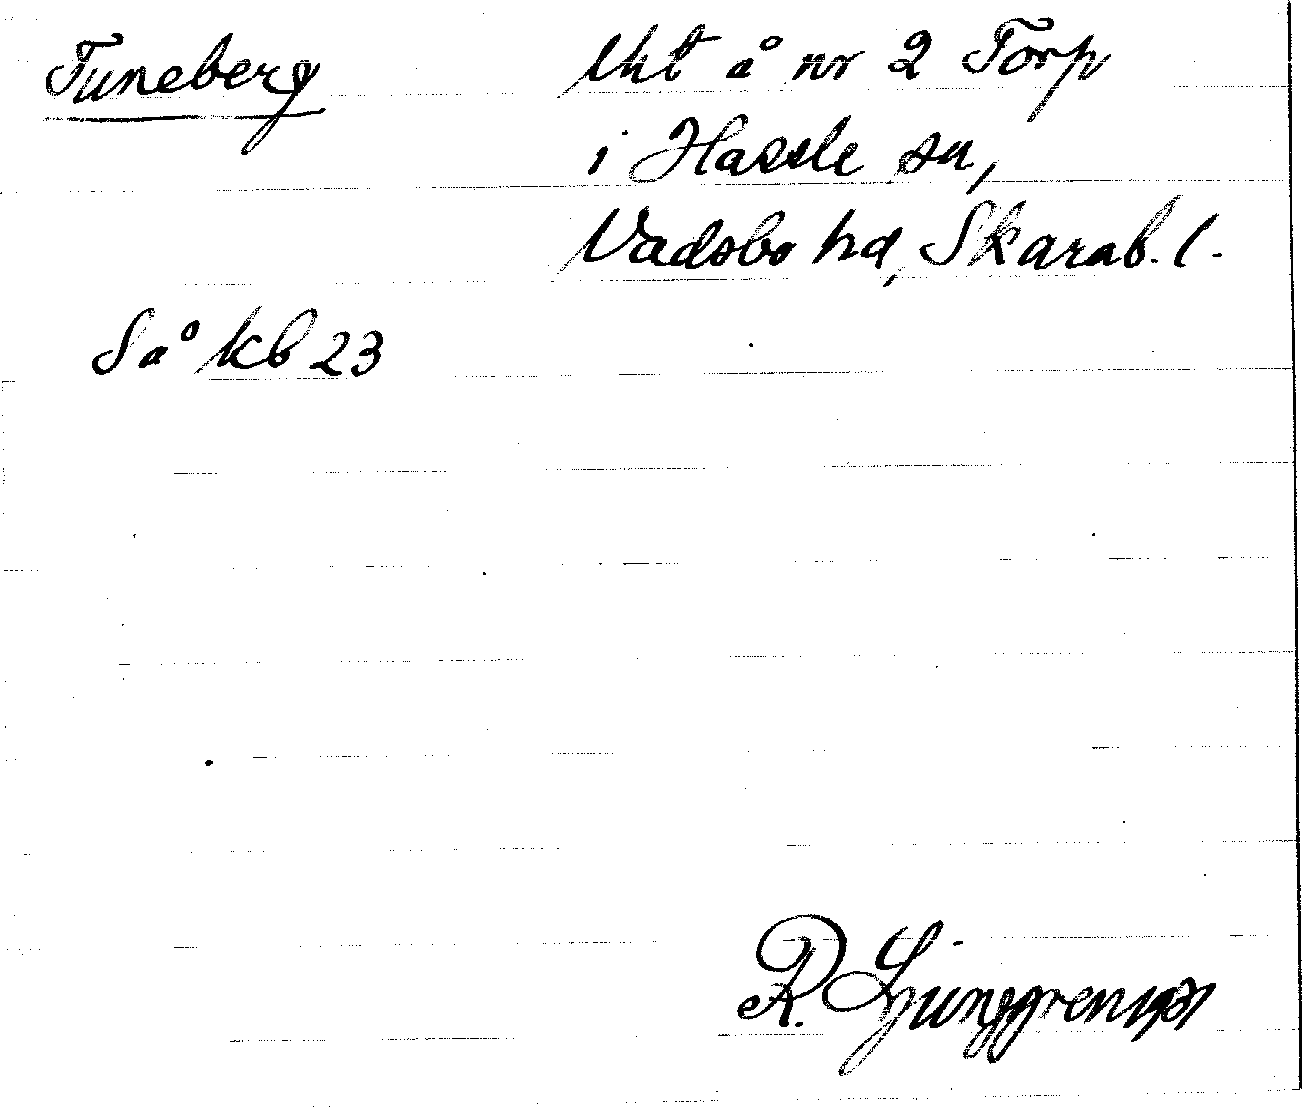 Tuneberg
Uht å nr 2 Torp
i Hassle sn,
Vadsbo hd, Skarab. l.
Så kb 23
R. Ljunggren 1931